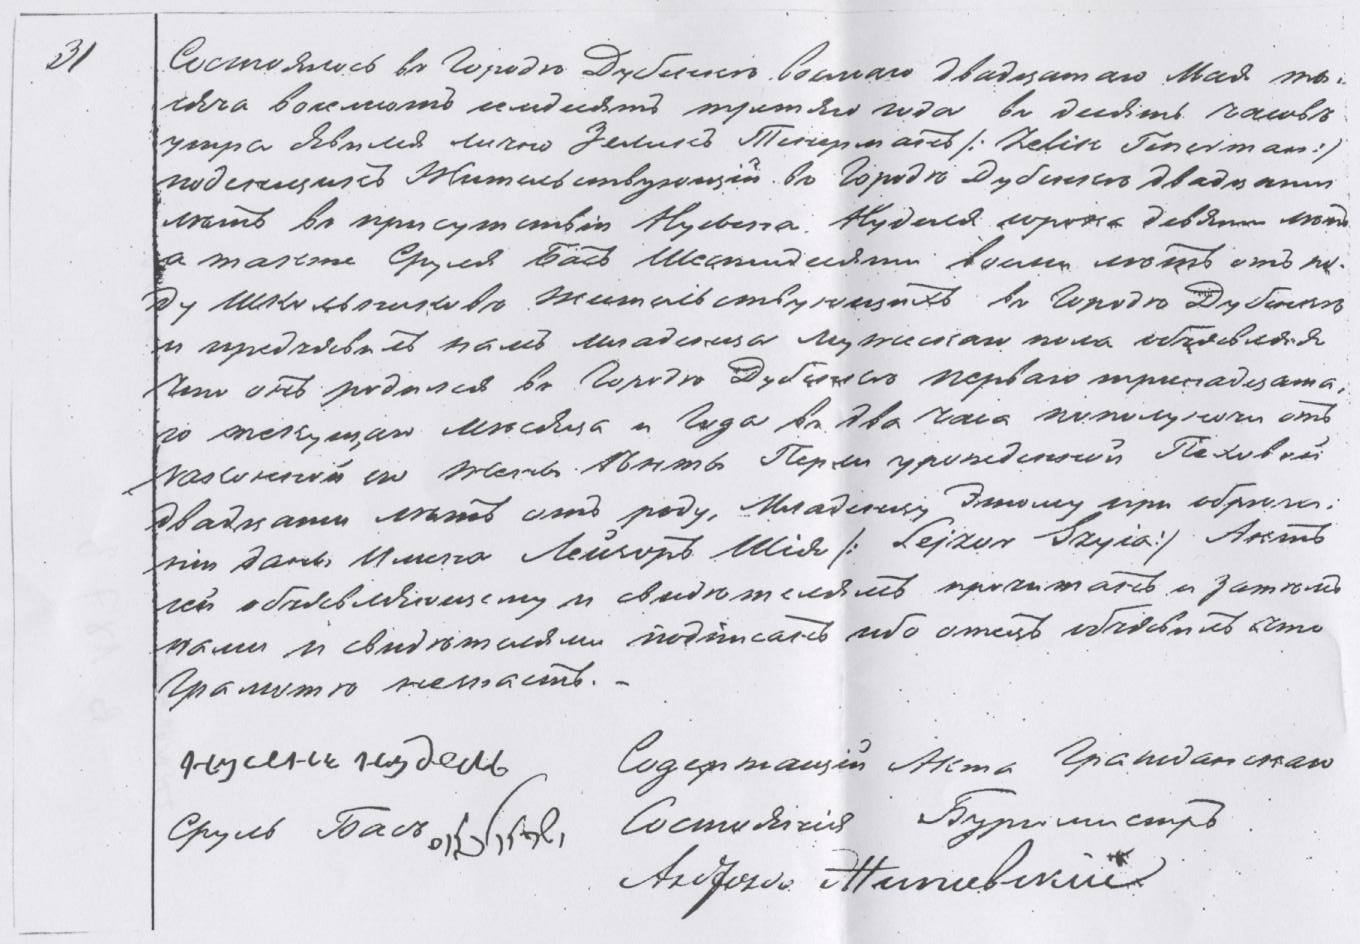 31
Состоялось въ Городѣ Дубенкѣ восьмаго двадцатаго Мая ты-
сяча восемьсотъ семьдесятъ третьяго года въ десять часовъ
утра явился лично Зеликъ Тинерманъ /: Zelik Tinerman :/
поденщикъ Жительствующій въ Городѣ Дубенкѣ двадцати
лѣтъ въ присутствіи Нусына Нуделя сорока девяти лѣтъ
а также Сруля Басъ Шестидесяти восми лѣтъ отъ ро-
ду Школьниковъ жительствующихъ въ Городѣ Дубенкѣ
и предъявилъ намъ младенца мужескаго пола объявляя
что онъ родился въ Городѣ Дубенкѣ перваго тринадцата-
го текущаго мѣсяца и Года въ два часа пополуночи отъ
законной его жены Перли урожденной
двадцати лѣтъ отъ роду, Младенцу Этому при обрѣза-
ніи дано Имена Лейзоръ Шія /: Lejzor Szyia :/ Актъ
сей объявляющему и свидѣтелямъ прочитанъ и затѣмъ
нами и свидѣтелями подписанъ ибо отецъ объявилъ что
Грамотѣ незнаетъ. -
нусенъ нудель
Содержащій Акта Гражданскаго
Сруль Басъ
Состоянія Бургмистръ